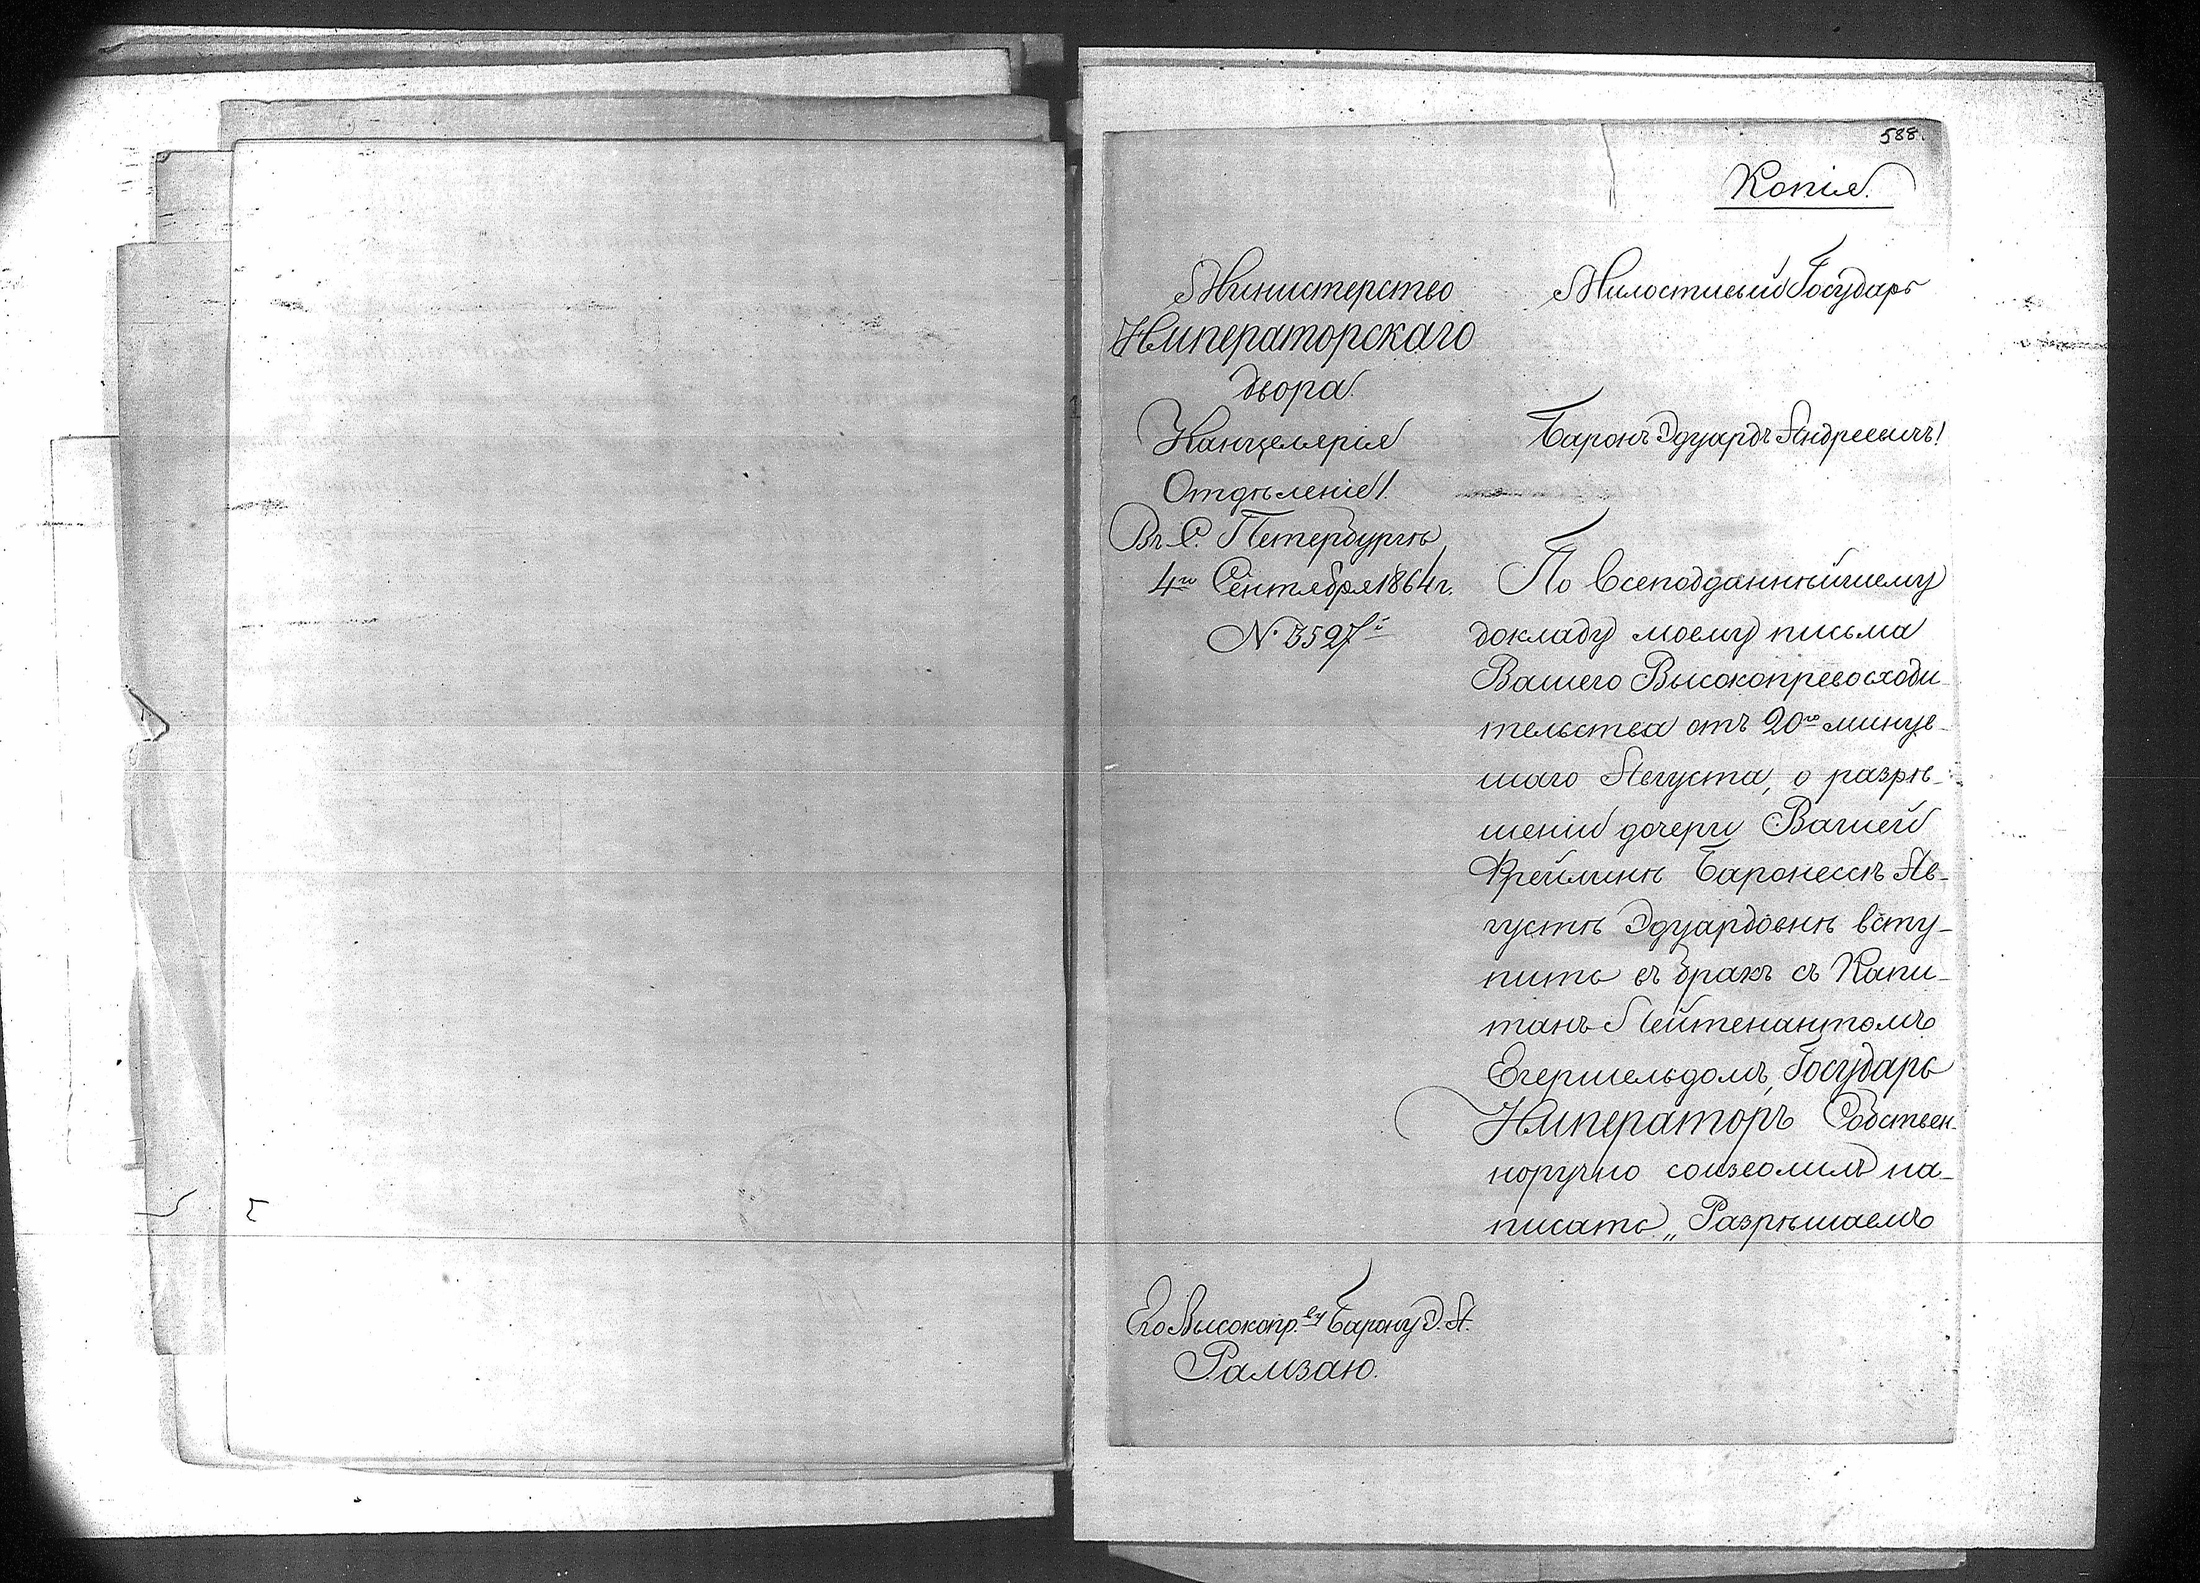 588.
Копія.
Министерство
Императорскаго
двора.
Канцелярія
Отдѣленіе 1.
Въ С. Петербургѣ
4го Сентября 1864 г.
№ 3527й
Милостивый Государь
Баронъ Эдуардъ Андреевичъ!
По Всеподданнѣйшему
докладу моему письма
Вашего Высокопревосходи-
тельства отъ 20го минув-
шаго Августа, о разрѣ-
шеніи дочери Вашей
Фрейлинѣ Баронессѣ Ав-
густѣ Эдуардовнѣ всту-
пить въ бракъ съ Капи-
танъ-Лейтенантомъ
Егершельдомъ, Государь
Императоръ Собствен-
норучно соизволилъ на-
писать „Разрѣшаемъ
Его Высокопр.ву Барону Э. А.
Рамзаю.